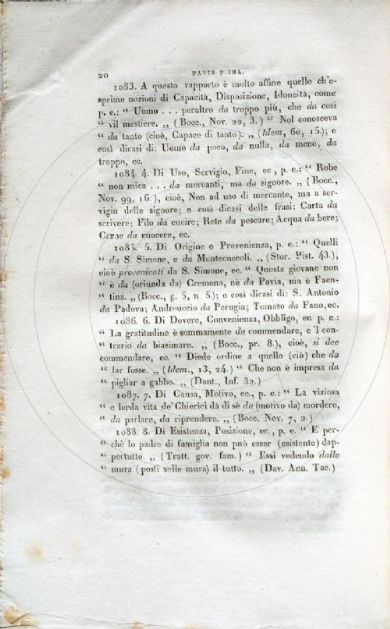 20 PARTE PRIMA.
1083. A questo rapporto è molto affine quello ch'e-
sprime nozioni di Capacità, Disposizione, Idoneità, come
p. e.: “ Uomo . . . peraltro da troppo più, che da così
“ vil mestiere. „ (Bocc., Nov. 22, 3.) “ Nol conosceva
“ da tanto (cioè, Capace di tanto). „ (Idem, 60, 15.); e
così dicasi di: Uomo da poco, da nulla, da meno, da
troppo, ec.
1084. 4. Di Uso, Servigio, Fine, ec., p. e.: “ Robe
“ non mica . . . da mercanti, ma da signore. „ (Bocc.,
Nov. 99, 16.), cioè, Non ad uso di mercante, ma a ser-
vigio delle signore; e così dicasi delle frasi: Carta da
scrivere; Filo da cucire; Rete da pescare; Acqua da bere;
Carne da cuocere, ec.
1085. 5. Di Origine o Provenienza, p. e.: “ Quelli
“ da S. Simone, e da Montecuccoli. „ (Stor. Pist. 43.),
cioè provenienti da S. Simone, ec. “ Questa giovane non
“ è da (oriunda da) Cremona, nè da Pavia, ma è Faen-
“ tina. „ (Bocc., g. 5, n. 5); e così dicasi di: S. Antonio
da Padova; Andreuccio da Perugia; Tomato da Fano, ec.
1086. 6. Di Dovere, Convenienza, Obbligo, ec. p. e.:
“ La gratitudine è sommamente da commendare, e 'l con-
“ trario da biasimare. „ (Bocc., pr. 8.), cioè, si dee
commendare, ec. “ Diede ordine a quello (ciò) che da
“ far fosse. „ (Idem., 13, 24.) “ Che non è impresa da
“ pigliar a gabbo. „ (Dant., Inf. 32.)
1087. 7. Di Causa, Motivo, ec., p. e.: “ La viziosa
“ e lorda vita de' Chierici dà di sè da (motivo da) mordere,
“ da parlare, da riprendere. „ (Bocc. Nov. 7, 2.)
1088. 8. Di Esistenza, Posizione, ec., p. e. “ E per-
“ chè lo padre di famiglia non può essar (esistente) dap-
“ pertutto. „ (Tratt. gov. fam.) “ Essi vedendo dalle
“ mura (posti sulle mura) il tutto. „ (Dav. Ann. Tac.)